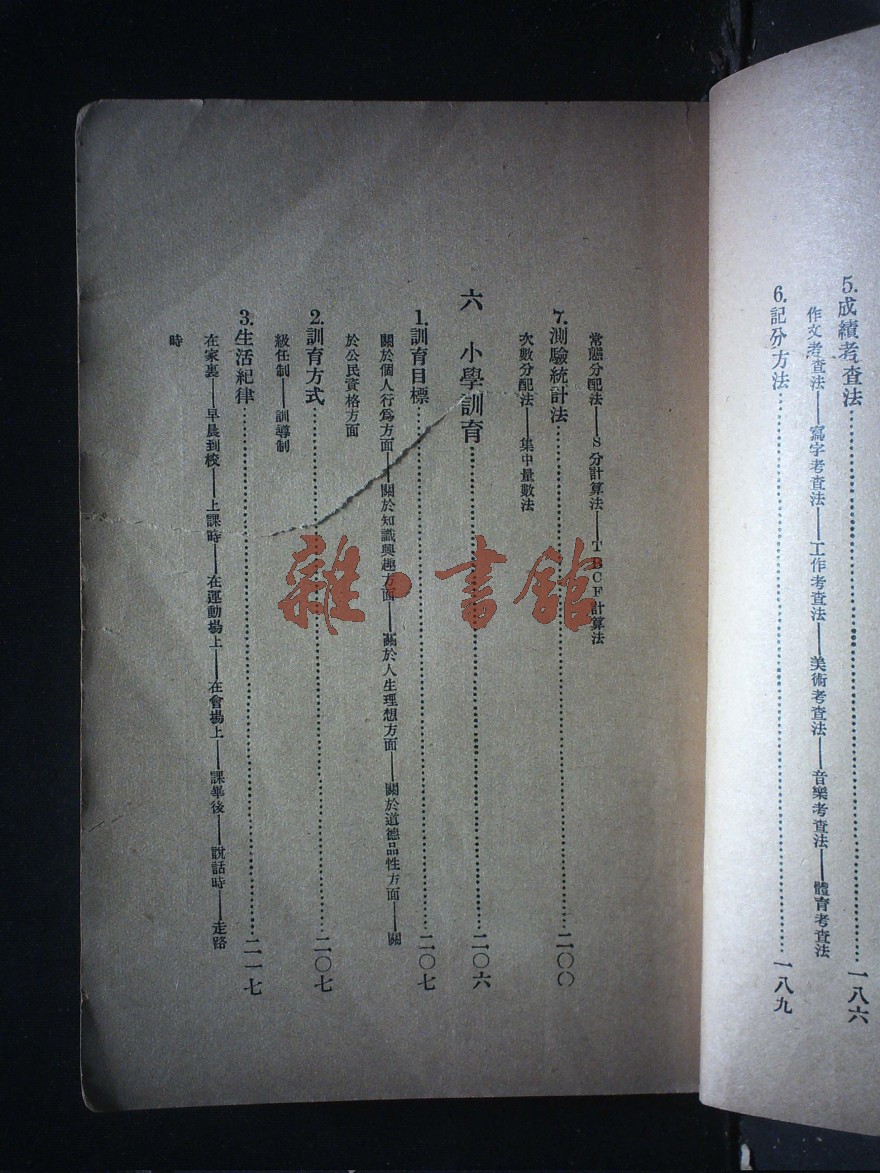 5.成績考查法……一八六
作文考查法——寫字考查法——工作考查法——美術考查法——音樂考查法——體育考查法
6.記分方法……一八九
常態分配法——S分計算法——TBCF計算法
7.測驗統計法……二〇〇
次數分配法——集中量數法
六 小學訓育……二〇六
1.訓育目標……二〇七
關於個人行為方面——關於知識興趣方面——關於人生理想方面——關於道德品性方面——關
於公民資格方面
2.訓育方式……二〇七
級任制——訓導制
3.生活紀律……二一七
在家裏——早晨到校——上課時——在運動場上——在會場上——課畢後——說話時——走路
時
雜·書館